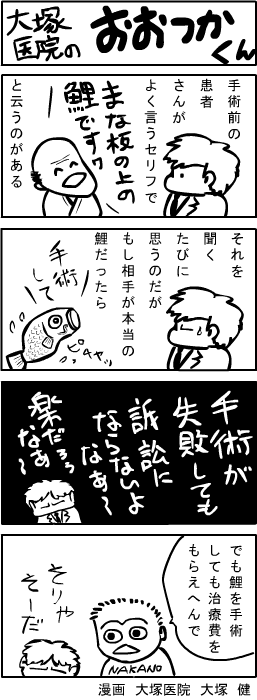 大塚
医院の
おおつか
くん
手術前の
患者
さんが
よく言うセリフで
まな板の上の
鯉ですワ
と云うのがある
それを
聞く
たびに
思うのだが
もし相手が本当の
鯉だったら
手術
して
ピッチャッ
手術が
失敗しても
訴訟に
ならないよ
なぁ〜
楽だろぅ
なぁ〜
でも鯉を手術
しても治療費を
もらえへんで
そりゃ
そーだ
NAKANO
漫画 大塚医院 大塚 健